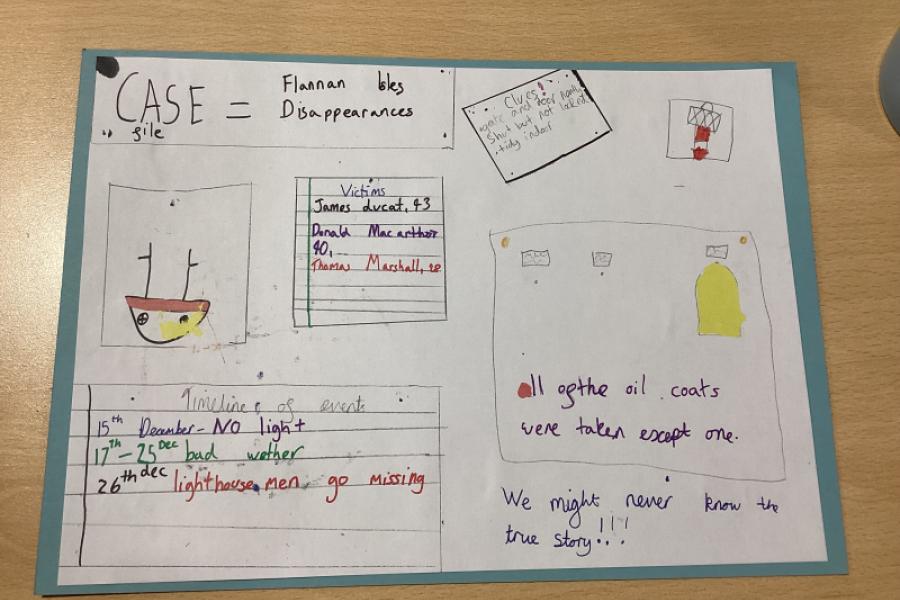 CASE = Flannan Isles
file Disappearances
Clues!
gate and door
shut but not locked
tidy indoor
Victims
James ducat, 43
Donald Mac arthor
40,
Thomas Marshall, 28
Timeline of event
15th December - NO light
17th - 25 Dec bad wether
26th dec lighthouse men go missing
All of the oil coats
were taken except one.
We might never know the
true story!!!